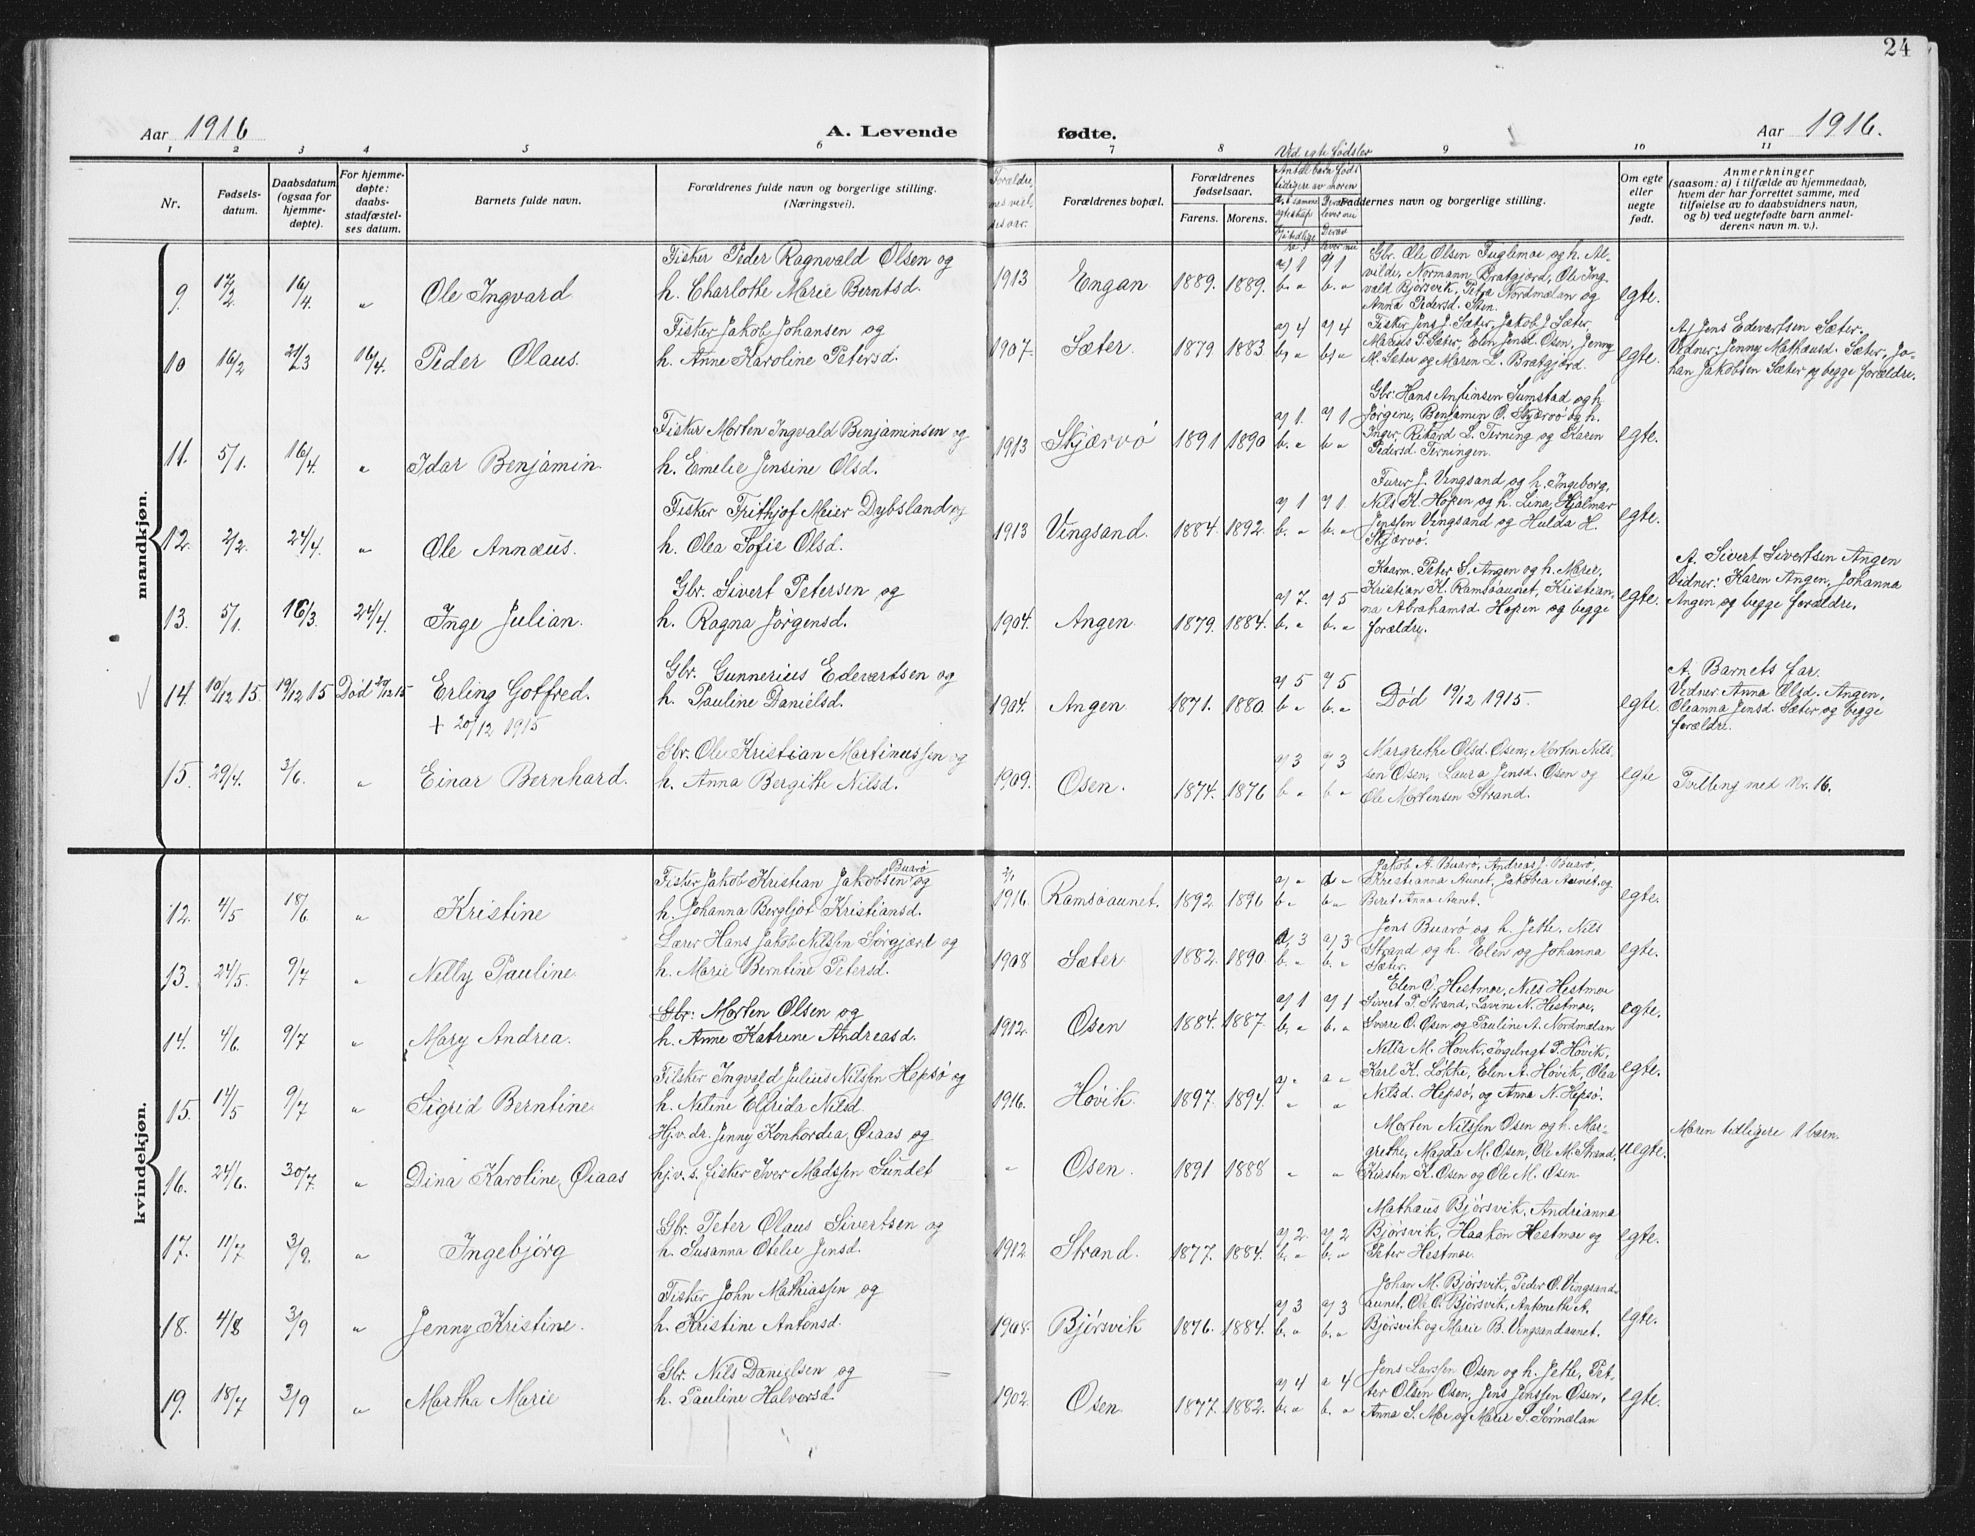 24
Aar 1916 A. Levende fødte. Aar 1916.
1 2 3 4 5 6 7 8 9 10 11
Nr.
Fødsels-
datum.
Daabsdatum
(ogsaa for
hjemme-
døpte).
For hjemme-
døpte:
daabs-
stadfæstel-
ses datum.
Barnets fulde navn.
Forældrenes fulde navn og borgerlige stilling.
(Næringsvei).
Forældrenes bopæl.
Forældrenes
fødselsaar.
Farens. Morens.
Ved egte fødsler
Faddernes navn og borgerlige stilling.
Om egte
eller
uegte
født.
Anmerkninger
(saasom: a) i tilfælde av hjemmedaab,
hvem der har forrettet samme, med
tilføielse av to daabsvidners navn,
og b) ved uegtefødte barn anmel-
derens navn m. v.).
mandkjøn.
9 12/2 16/4 " Ole Ingvard
Fisker Peder Ragnvald Olsen og
h. Charlotte Marie Berntsd.
1913 Engan 1889. 1889. a) 1 a) 1
b. " b. "
Gbr. Ole Olsen Fuglemoe og h. Al-
vilde, Normann Bratgjerd, Ole Ing-
vald Bjørsvik, Petra Nordmælan og
Anna Pedersd. Sten.
egte.
10 16/2 21/3 16/4. Peder Olaus.
Fisker Jakob Johansen og
h. Anne Karoline Petersd.
1907. Sæter. 1879 1883. a) 4 a) 4
b) " b) "
Fisker Jens J. Sæter, Jakob J. Sæter,
Marius P. Sæter, Elen Jensd. Osen, Jenny
M. Sæter og Maren L. Bratgjerd.
egte.
A) Jens Edevartsen Sæter.
Vidner: Jenny Mathæusd. Sæter, Jo-
han Jakobsen Sæter og begge forældre.
11. 5/1. 16/4. " Idar Benjamin.
Fisker Morten Ingvald Benjaminsen og
h. Emelie Jensine Olsd.
1913 Skjærvø 1891 1890 a) 1. a) 1
b. " b. "
Gbr. Hans Antinsen Sumstad og h.
Jørgine, Benjamin O. Skjærvø og h.
Inger, Rikard L. Terning og Karen
Pedersd. Terningen.
egte.
12. 2/2. 24/4. " Ole Annæus.
Fisker Frithjof Meier Dybsland og
h. Olea Sofie Olsd.
1913 Vingsand. 1884. 1892. a) 1 a) 1.
b. " b. "
Furer J. Vingsand og h. Ingeborg,
Nils K. Hopen og h. Lina, Hjalmar
Jenssen Vingsand og Hulda H.
Skjærvø.
egte.
13. 5/1. 16/3. 24/4. Inge Julian.
Gbr. Sivert Petersen og
h. Ragna Jørgensd.
1904. Angen. 1879. 1884. a) 7. a) 5
b. " b. "
Kaarm. Peter S. Angen og h. Marie,
Kristian K. Ramsøaunet, Kristian-
na Abrahamsd. Hopen og begge
forældre.
egte.
A. Sivert Sivertsen Angen
Vidner: Karen Angen, Johanna
Angen og begge forældre.
14. 10/12 15. 19/12 15 Død 20/12 15 Erling Gotfred.
+ 20/12 1915
Gbr. Gunnerius Edevartsen og
h. Pauline Danielsd.
1904. Angen 1871. 1880. a) 5 a) 5
b. " b. "
Død 19/12 1915.
egte.
A) Barnets far.
Vidner Anna Olsd. Angen,
Oleanna Jensd. Sæter og begge
forældre.
15. 29/4. 3/6. " Einar Bernhard.
Gbr. Ole Kristian Martinussen og
h. Anna Bergitte Nilsd.
1909. Osen. 1874. 1876 a) 3 a) 3
b " b "
Margrethe Olsd. Osen, Morten Nils-
sen Osen, Laura Jensd. Osen og
Ole Mortensen Strand.
egte
Tvilling med Nr. 16.
kvindekjøn.
12. 4/5 18/6 " Kristine
Fisker Jakob Kristian Jakobsen Buarø og
h. Johanna Bergljot Kristiansd.
1916. Ramsøaunet. 1892. 1896
b. " b "
Jakob A. Buarø, Andreas J. Buarø,
Kristianna Aunet, Jakobea Aunet og
Beret Anna Aunet.
egte.
13. 24/5. 9/7 " Nelly Pauline.
Lærer Hans Jakob Nilssen Sørgjerd og
h. Marie Berntine Petersd.
1908 Sæter 1882. 1890. a) 3 a) 3
b. " b. "
Jens Buarø og h. Jette, Nils
Strand og h. Elen og Johanna
Sæter.
egte.
14. 4/6 9/7 " Mary Andrea.
Gbr: Morten Olsen og
h. Anne Katrine Andreasd.
1912. Osen 1884. 1887. a) 1 a) 1
b. " b. "
Elen O. Hestmoe, Nils Hestmoe
Sivert P. Strand, Lavine N. Hestmoe,
Sverre O. Osen og Pauline A. Nordmælan
egte.
15. 14/5 9/7 " Sigrid Berntine.
Filsker Ingvald Julius Nilssen Hepsø og
h. Neline Elfrida Nilsd.
1916. Høvik. 1897. 1894. a " a "
" "
Nella M. Høvik, Ingebregt P. Høvik,
Karl K. Løkke, Elen A. Høvik, Olea
Nilsd. Hepsø, og Anna N. Hepsø.
egte.
16. 24/6. 30/7. " Dina Karoline Øiaas
Hj.v. dr. Jenny Konkordia Øiaas og
hj.v.s. fisker Iver Madssen Sundet
" Osen. 1891 1888 " "
Morten Nilssen Osen og h. Mar-
grethe, Magda M. Osen, Ole M. Strand,
Kirsten K. Osen og Ole M. Osen.
uegte.
Moren tidligere 1 barn.
17. 11/7 3/9. " Ingebjørg
Gbr. Peter Olaus Sivertsen og
h. Susanna Otelie Jensd.
1912 Strand. 1877. 1884. a) 2. a) 2
b. " b. "
Mathæus Bjørsvik, Andrianna
Bjørsvik, Haakon Hestmoe og
Peter Hestmoe.
egte.
18. 4/8 3/9 " Jenny Kristine.
Fisker John Mathiassen og
h. Kristine Antonsd.
1908. Bjørsvik 1876. 1884. a) 3 a) 3
b. " b. "
Johan M. Bjørsvik, Peder O. Vingsand-
aunet, Ole O. Bjørsvik, Antonette A.
Bjørsvik og Marie B. Vingsandaunet.
egte.
19. 18/7 3/9 " Martha Marie
Gbr. Nils Danielsen og
h. Pauline Halvorsd.
1902. Osen. 1877. 1882. a) 4 a 4
b. " b. "
Jens Larssen Osen og h. Jette, Pet-
ter Olsen Osen, Jens Jenssen Osen,
Anna S. Moe og Marie S. Sørmælan
egte.